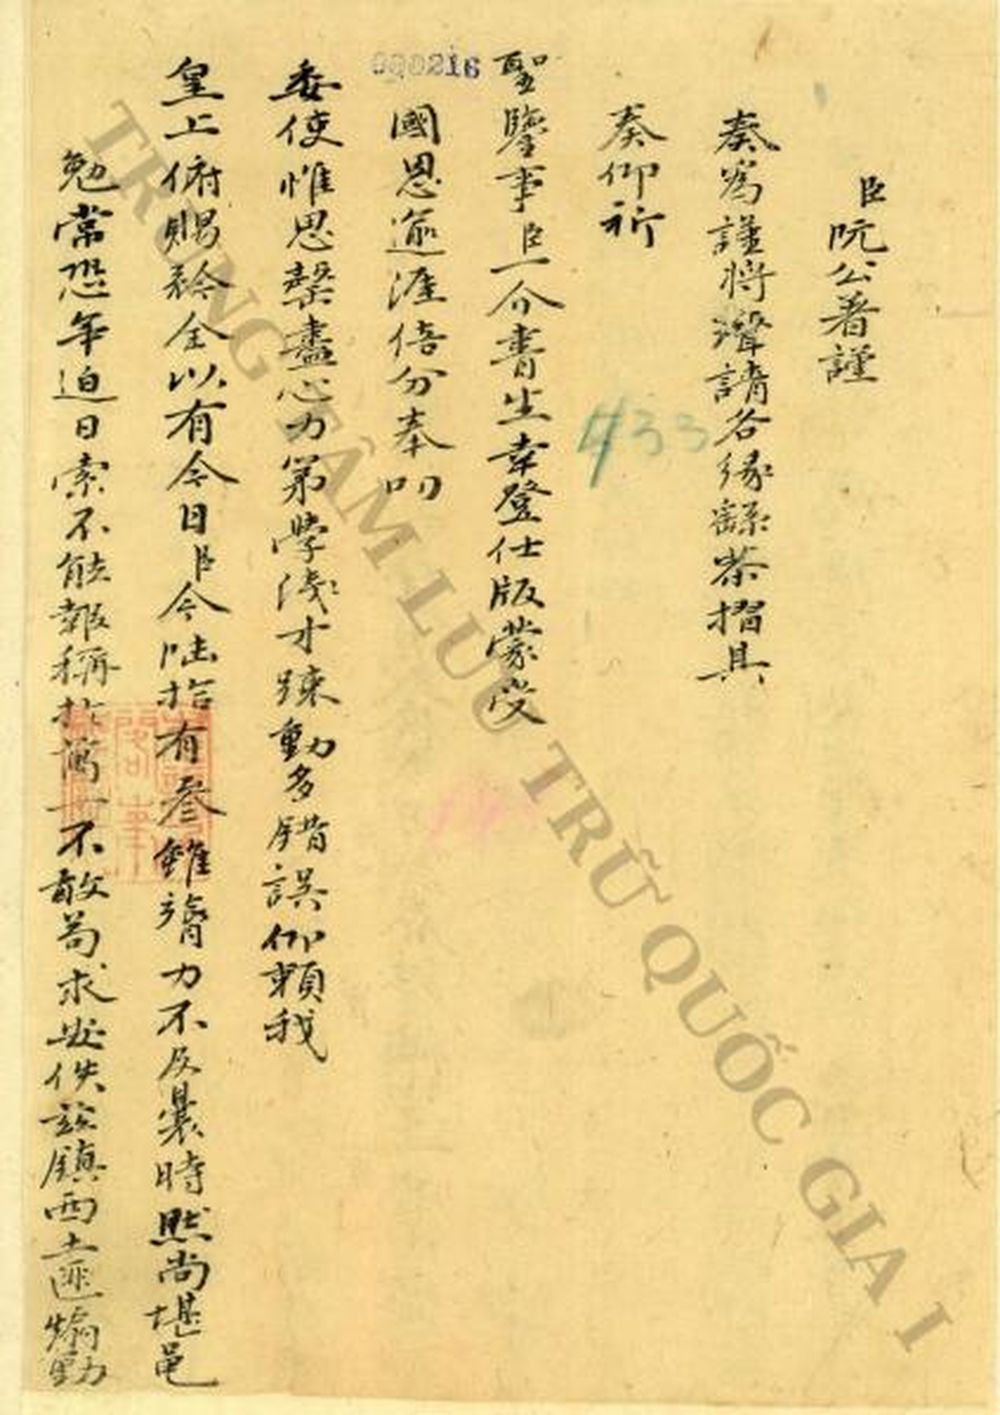 臣阮公著謹
奏為謹將瀝請各緣繇恭摺具
奏仰祈
聖鑒事臣一介書生幸登仕版蒙受
國恩逾涯倍分奉叨
委使惟思罄盡心力第學淺才踈動多錯誤仰賴我
皇上俯賜矜全以有今日臣今陆拾有叁雖膂力不及曩時然尚堪黽
勉常恐年迫日索不能報稱於萬一不敢苟求安佚茲鎮西土匪煽動
000216
433
TRUNG TÂM LƯU TRỮ QUỐC GIA I